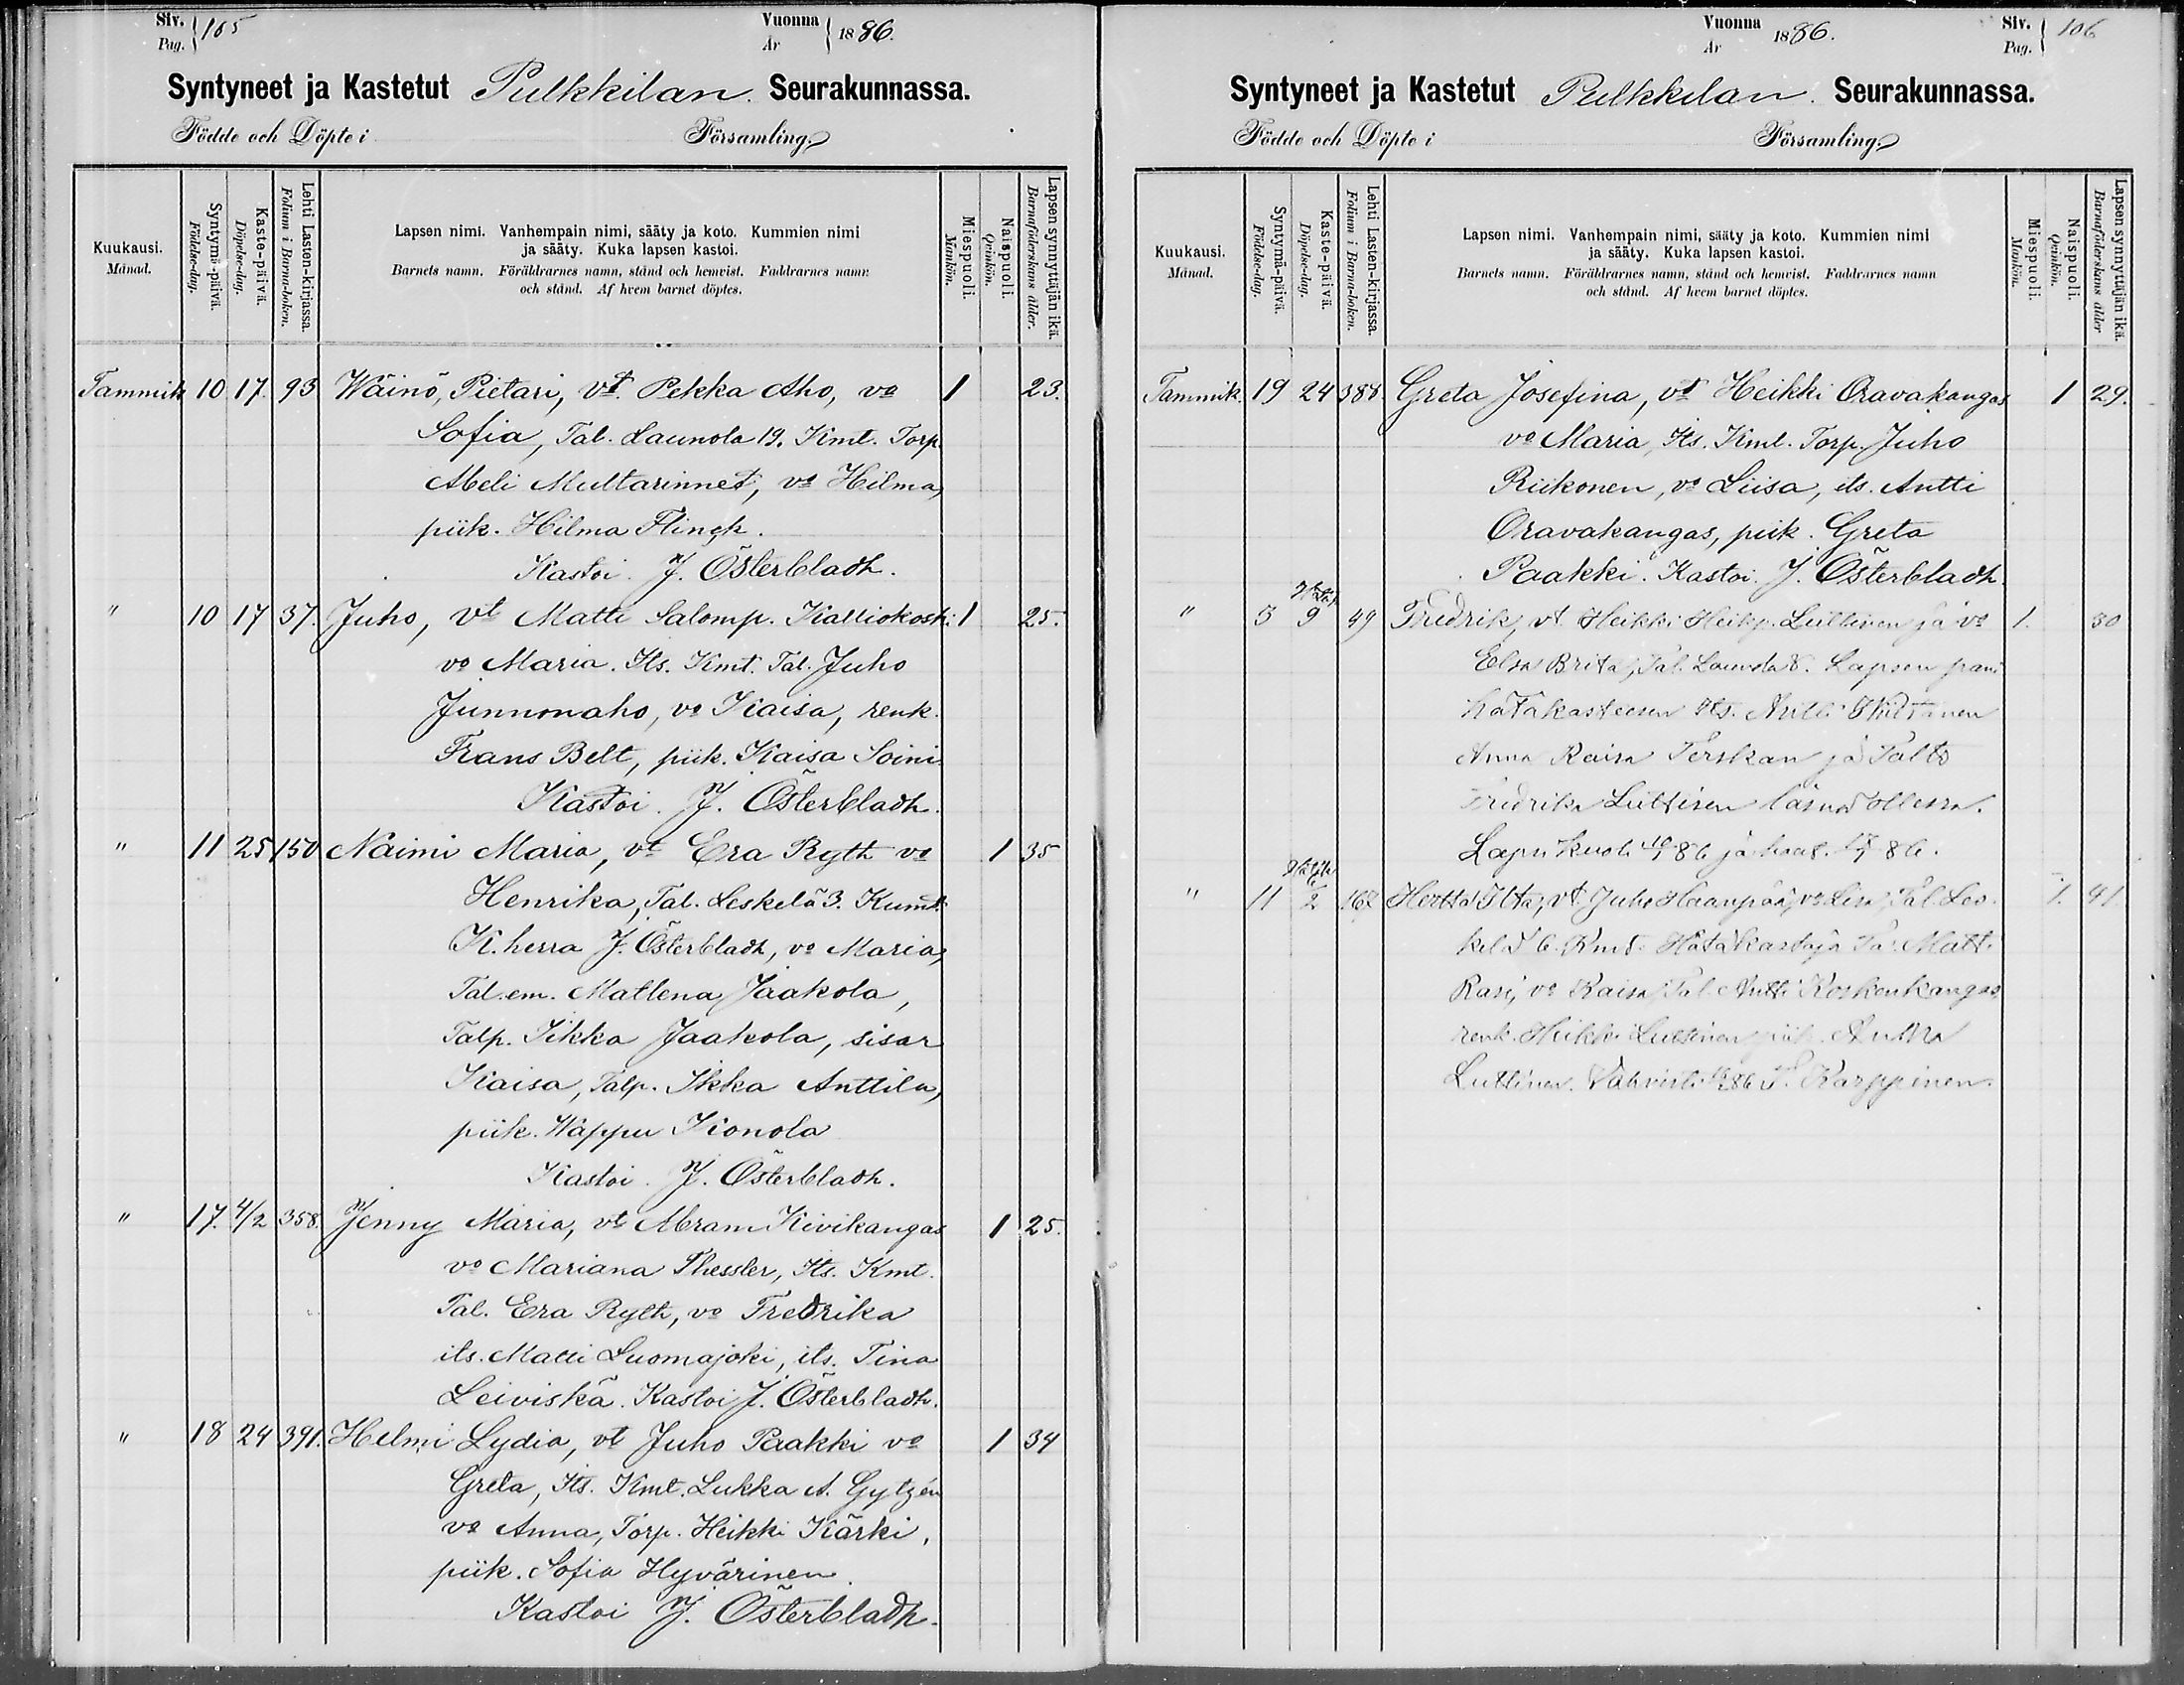 Siv. Pag. 105
Vuonna År 1886.
Syntyneet ja Kastetut Pulkkilan Seurakunnassa.
Födde och Döpte i Församling.
Kuukausi. Månad.
Syntymä-päivä. Födelse-dag.
Kaste-päivä. Döpelse-dag.
Lehti Lasten-kirjassa. Folium i Barna-boken.
Lapsen nimi. Vanhempain nimi, sääty ja koto. Kummien nimi
ja sääty. Kuka lapsen kastoi.
Barnets namn. Föräldrarnes namn, stånd och hemvist. Faddrarnes namn
och stånd. Af hvem barnet döptes.
Miespuoli. Mankön.
Naispuoli. Qvinkön.
Lapsen synnyttäjän ikä. Barnaföderskans ålder.
Tammik 10 17. 93 Wäinö, Pietari, vt. Pekka Aho, vo 1 23.
Sofia, Tal. Launola 19. Kmt. Torp.
Abeli Multarinnet, vo Hilma,
piik. Hilma Flinck.
Kastoi. J. Österbladh.
" 10 17 37. Juho, vt Matti Salomp. Kalliokoski 1 25.
vo Maria. Its. Kmt. Tal. Juho
Junnonaho, vo Kaisa, renk.
Frans Belt, piik. Kaisa Soini.
Kastoi. J. Österbladh.
" 11 25 150 Naimi Maria, vt Era Ryth vo 1 35
Henrika, Tal. Leskelä 3. Kumt.
K. herra J. Österbladh, vo Maria,
Tal. em. Matlena Jaakola,
Talp. Iikka Jaakola, sisar
Kaisa, Talp. Ikka Anttila,
piik. Wappu Konola
Kastoi. J. Österbladh.
" 17. 4/2 358. Jenny Maria, vt Abram Kivikangas 1 25.
vo Mariana Thessler, Its. Kmt.
Tal. Era Ryth, vo Fredrika
its. Matti Luomajoki, its. Tina
Leiviskä. Kastoi J. Österbladh.
" 18 24 391. Helmi Lydia, vt Juho Paakki vo 1 34
Greta, Its. Kmt. Lukka A. Gytzén
vo Anna, Torp. Heikki Kärki,
piik. Sofia Hyvärinen.
Kastoi J. Österbladh.
Vuonna År 1886.
Siv. Pag. 106
Syntyneet ja Kastetut Pulkkilan Seurakunnassa.
Födde och Döpte i Församling.
Kuukausi. Månad.
Syntymä-päivä. Födelse-dag.
Kaste-päivä. Döpelse-dag.
Lehti Lasten-kirjassa. Folium i Barna-boken.
Lapsen nimi. Vanhempain nimi, sääty ja koto. Kummien nimi
ja sääty. Kuka lapsen kastoi.
Barnets namn. Föräldrarnes namn, stånd och hemvist. Faddrarnes namn
och stånd. Af hvem barnet döptes.
Miespuoli. Mankön.
Naispuoli. Qvinkön.
Lapsen synnyttäjän ikä. Barnaföderskans ålder
Tammik. 19 24 388. Greta Josefina, vt Heikki Oravakangas 1 29.
vo Maria, Its. Kmt. Torp. Juho
Riikonen, vo Liisa, its. Antti
Oravakangas, piik. Greta
Paakki. Kastoi. J. Österbladh.
" 3 9 49 Fredrik, vt Heikki Heikp. Luttinen ja vo 1. 30
Elsa Brita, Tal. Launola 8. Lapsen pani
hätäkasteesen Its. Antti
Anna Kaisa Terskan ja Talts
Fredrika Luttisen läsnä ollessa.
Lapsi kuoli 10/1 86 ja haud. 86.
" 11 2 162 Hertta Ilta, vt. Juho Haanpää, vo Lisa, Tal. Les- 1. 41.
kelä 6. Kmt. Hätäkastaja Tal. Matti
Rasi, vo Kaisa, Tal. Antti Koskenkangas,
renk. Heikki Luttinen piik. Anna
Luttinen. Vahvisti 86 Karppinen.